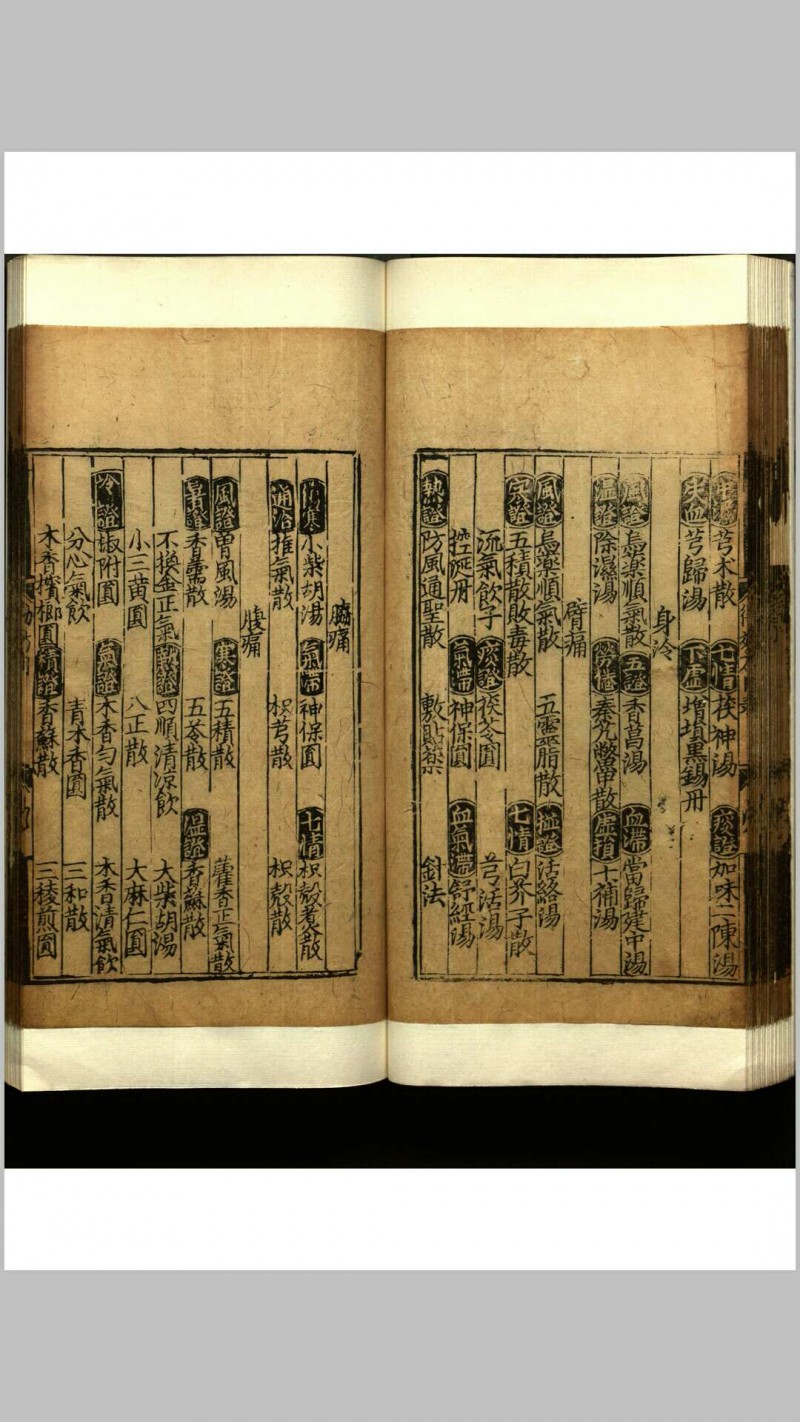 芎术散 七情 茯神湯 痰證 加味二陳湯
失血 芎歸湯 下虛 增損黑錫丹
身冷
風證 烏藥順氣散 五證 香葛湯 血滯 當歸建中湯
濕證 除濕湯 勞倦 秦艽鱉甲散 虛損 十補湯
臂痛
風證 烏藥順氣散 五靈脂散 活絡湯
寒證 五積散敗毒散 七情 白芥子散
流氣飲子 痰證 茯苓圓 芎活湯
控涎丹 氣滯 神保圓 血氣滯 舒經湯
熱證 防風通聖散 敷貼藥 針法
脇痛
傷寒 小柴胡湯 氣滯 神保圓 七情 枳殼煮散
通治 推氣散 枳芎散 枳殼散
腹痛
風證 胃風湯 寒證 五積散 藿香正氣散
暑證 香薷散 五苓散 濕證 香蘇散
不換金正氣散 熱證 四順清涼飲 大柴胡湯
小三黃圓 八正散 大麻仁圓
冷證 椒附圓 氣證 木香勻氣散 木香清氣飲
分心氣飲 青木香圓 三和散
木香檳榔圓 積證 香蘇散 三稜煎圓